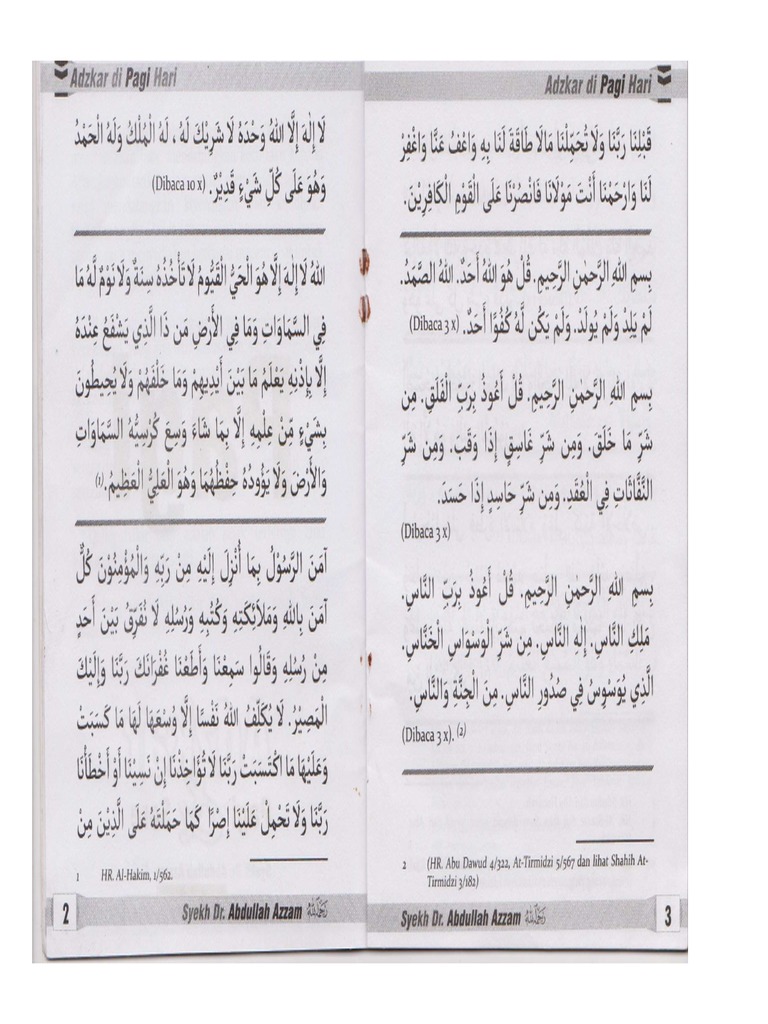 Adzkar di Pagi Hari
لَا إِلٰهَ إِلَّا اللهُ وَحْدَهُ لَا شَرِيْكَ لَهُ ، لَهُ الْمُلْكُ وَلَهُ الْحَمْدُ
وَهُوَ عَلَى كُلِّ شَيْءٍ قَدِيْرٌ. (Dibaca 10 x)
اللهُ لَا إِلٰهَ إِلَّا هُوَ الْحَيُّ الْقَيُّومُ لَا تَأْخُذُهُ سِنَةٌ وَلَا نَوْمٌ لَّهُ مَا
فِي السَّمَاوَاتِ وَمَا فِي الْأَرْضِ مَن ذَا الَّذِي يَشْفَعُ عِنْدَهُ
إِلَّا بِإِذْنِهِ يَعْلَمُ مَا بَيْنَ أَيْدِيهِمْ وَمَا خَلْفَهُمْ وَلَا يُحِيطُونَ
بِشَيْءٍ مِّنْ عِلْمِهِ إِلَّا بِمَا شَاءَ وَسِعَ كُرْسِيُّهُ السَّمَاوَاتِ
وَالْأَرْضَ وَلَا يَؤُودُهُ حِفْظُهُمَا وَهُوَ الْعَلِيُّ الْعَظِيْمُ. (1)
آمَنَ الرَّسُوْلُ بِمَا أُنْزِلَ إِلَيْهِ مِنْ رَبِّهِ وَالْمُؤْمِنُوْنَ كُلٌّ
آمَنَ بِاللهِ وَمَلَائِكَتِهِ وَكُتُبِهِ وَرُسُلِهِ لَا نُفَرِّقُ بَيْنَ أَحَدٍ
مِنْ رُسُلِهِ وَقَالُوا سَمِعْنَا وَأَطَعْنَا غُفْرَانَكَ رَبَّنَا وَإِلَيْكَ
الْمَصِيْرُ. لَا يُكَلِّفُ اللهُ نَفْسًا إِلَّا وُسْعَهَا لَهَا مَا كَسَبَتْ
وَعَلَيْهَا مَا اكْتَسَبَتْ رَبَّنَا لَا تُؤَاخِذْنَا إِنْ نَسِيْنَا أَوْ أَخْطَأْنَا
رَبَّنَا وَلَا تَحْمِلْ عَلَيْنَا إِصْرًا كَمَا حَمَلْتَهُ عَلَى الَّذِيْنَ مِنْ
1 HR. Al-Hakim, 1/562.
2 Syekh Dr. Abdullah Azzam
Adzkar di Pagi Hari
قَبْلِنَا رَبَّنَا وَلَا تُحَمِّلْنَا مَا لَا طَاقَةَ لَنَا بِهِ وَاعْفُ عَنَّا وَاغْفِرْ
لَنَا وَارْحَمْنَا أَنْتَ مَوْلَانَا فَانْصُرْنَا عَلَى الْقَوْمِ الْكَافِرِيْنَ.
بِسمِ اللهِ الرَّحْمنِ الرَّحِيْمِ. قُلْ هُوَ اللهُ أَحَدٌ. اللهُ الصَّمَدُ.
لَمْ يَلِدْ وَلَمْ يُولَدْ. وَلَمْ يَكُن لَّهُ كُفُوًا أَحَدٌ. (Dibaca 3 x)
بِسمِ اللهِ الرَّحْمٰنِ الرَّحِيْمِ. قُلْ أَعُوذُ بِرَبِّ الْفَلَقِ. مِن
شَرِّ مَا خَلَقَ. وَمِن شَرِّ غَاسِقٍ إِذَا وَقَبَ. وَمِن شَرِّ
النَّفَّاثَاتِ فِي الْعُقَدِ. وَمِن شَرِّ حَاسِدٍ إِذَا حَسَدَ.
(Dibaca 3 x)
بِسمِ اللهِ الرَّحْمٰنِ الرَّحِيْمِ. قُلْ أَعُوذُ بِرَبِّ النَّاسِ.
مَلِكِ النَّاسِ. إِلٰهِ النَّاسِ. مِن شَرِّ الْوَسْوَاسِ الْخَنَّاسِ.
الَّذِي يُوَسْوِسُ فِي صُدُورِ النَّاسِ. مِنَ الْجِنَّةِ وَالنَّاسِ.
(Dibaca 3 x). (2)
2 (HR. Abu Dawud 4/322, At-Tirmidzi 5/567 dan lihat Shahih At-
Tirmidzi 3/182)
Syekh Dr. Abdullah Azzam 3